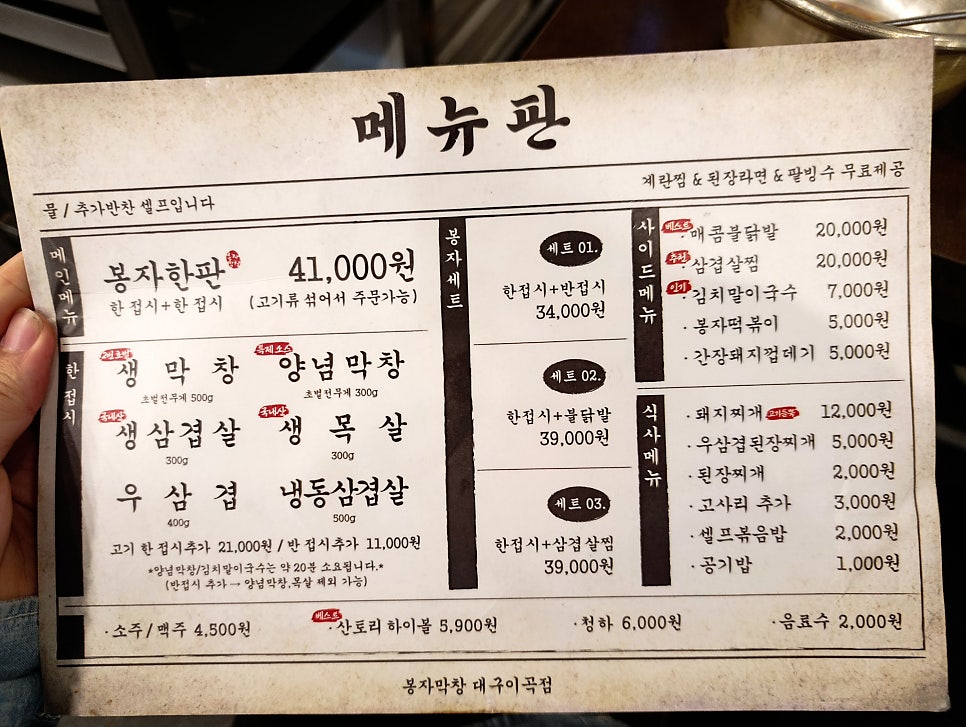 메뉴판
계란찜 & 된장라면 & 팥빙수 무료제공
물 / 추가반찬 셀프입니다
메인메뉴
봉자한판 41,000원
한접시+한 접시 (고기류 섞어서 주문가능)
한접시
생막창
초벌전무게 500g
특제소스
양념막창
초벌전무게 300g
국내산
생삼겹살
300g
국내산
생목살
300g
우삼겹
400g
냉동삼겹살
500g
고기 한접시추가 21,000원 / 반 접시추가 11,000원
*양념막창/김치말이국수는 약 20분 소요됩니다.*
(반접시 추가 → 양념막창,목살 제외 가능)
봉자세트
세트 01.
한접시+반접시
34,000원
세트 02.
한접시+불닭발
39,000원
세트 03.
한접시+삼겹살찜
39,000원
사이드메뉴
베스트
· 매콤불닭발 20,000원
추천
· 삼겹살찜 20,000원
인기
· 김치말이국수 7,000원
· 봉자떡볶이 5,000원
· 간장돼지껍데기 5,000원
식사메뉴
· 돼지찌개 고기듬뿍 12,000원
· 우삼겹된장찌개 5,000원
· 된장찌개 2,000원
· 고사리 추가 3,000원
· 셀프볶음밥 2,000원
· 공기밥 1,000원
· 소주 / 맥주 4,500원
베스트
· 산토리 하이볼 5,900원
· 청하 6,000원
· 음료수 2,000원
봉자막창 대구이곡점